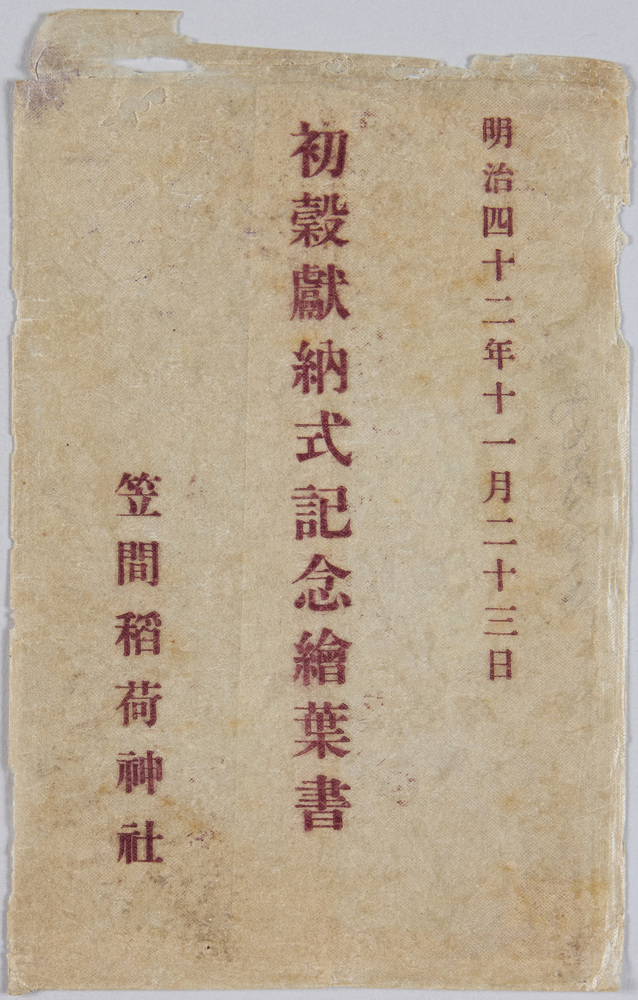 明治四十二年十一月二十三日
初穀獻納式記念繪葉書
笠間稻荷神社